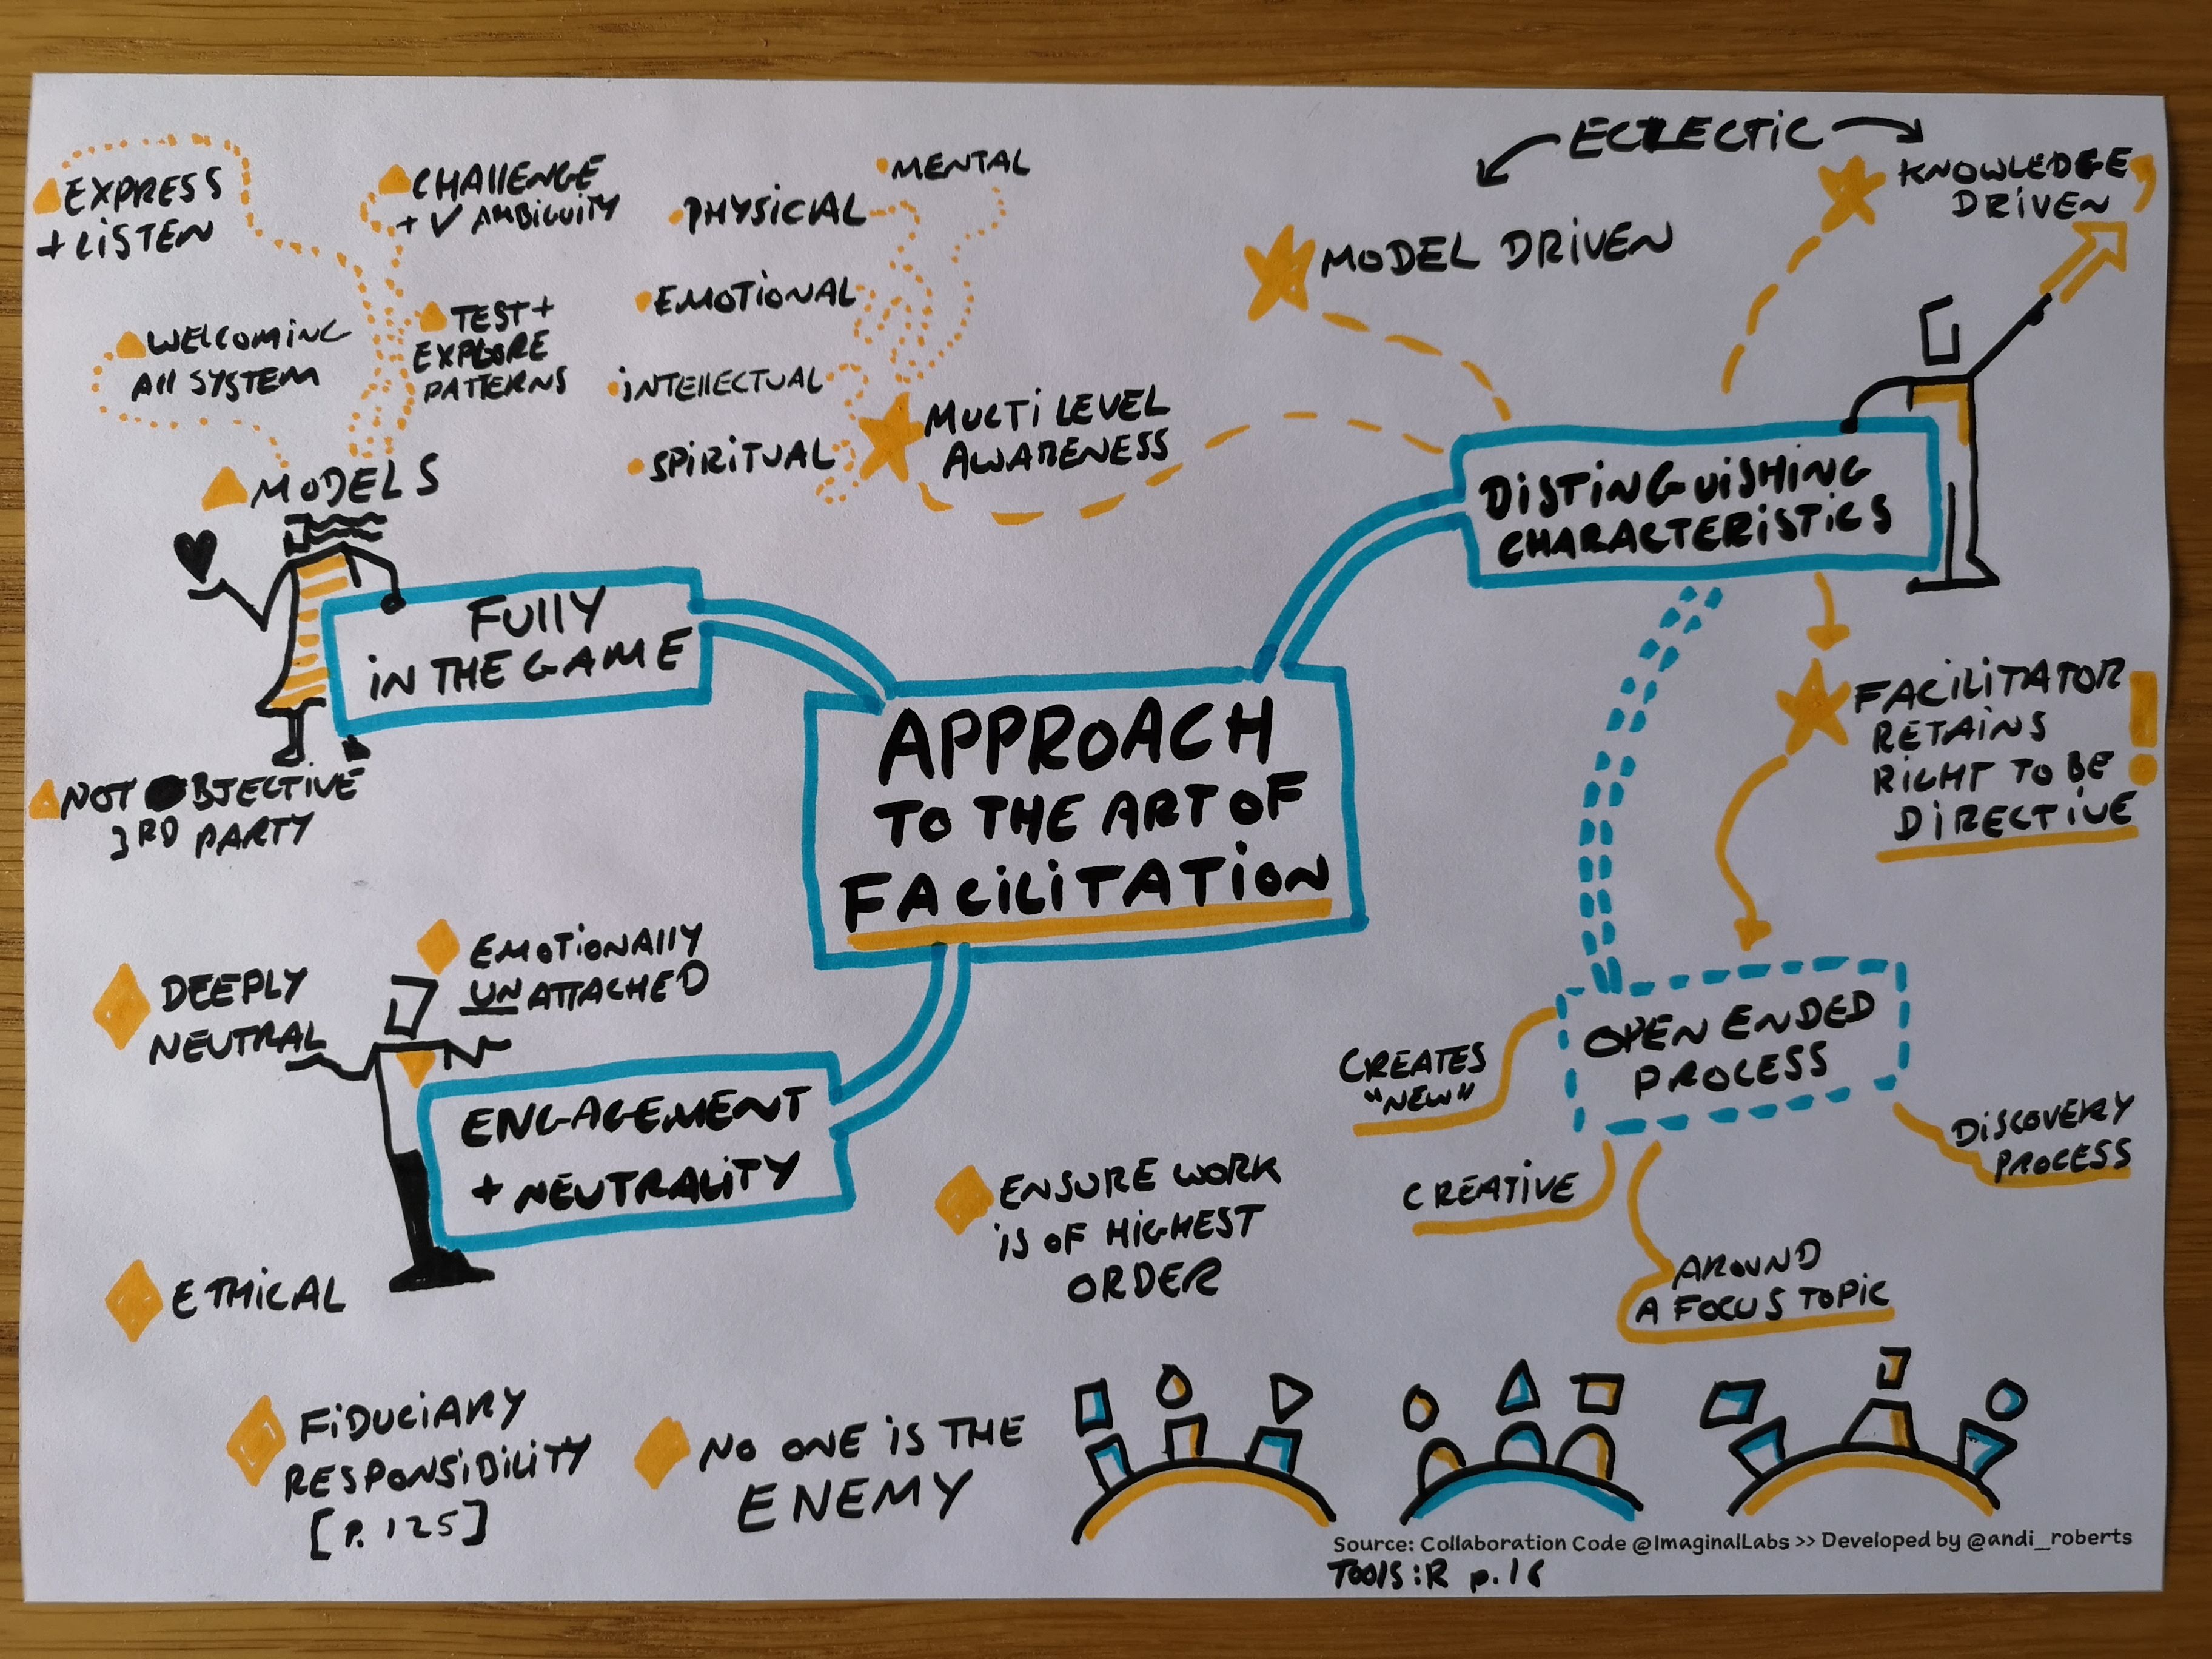 APPROACH
TO THE ART OF
FACILITATION
FULLY
IN THE GAME
MODELS
EXPRESS
+ LISTEN
WELCOMING
All SYSTEM
CHALLENGE
+ √ AMBIGUITY
TEST +
EXPLORE
PATTERNS
NOT OBJECTIVE
3RD PARTY
ECLECTIC
MODEL DRIVEN
KNOWLEDGE
DRIVEN
DISTINGUISHING
CHARACTERISTICS
MULTI LEVEL
AWARENESS
MENTAL
PHYSICAL
EMOTIONAL
INTELLECTUAL
SPIRITUAL
FACILITATOR
RETAINS
RIGHT TO BE
DIRECTIVE
!
OPEN ENDED
PROCESS
CREATES
"NEW"
CREATIVE
AROUND
A FOCUS TOPIC
DISCOVERY
PROCESS
ENGAGEMENT
+ NEUTRALITY
DEEPLY
NEUTRAL
EMOTIONALLY
UNATTACHED
ETHICAL
FIDUCIARY
RESPONSIBILITY
[P. 125]
NO ONE IS THE
ENEMY
ENSURE WORK
IS OF HIGHEST
ORDER
Source: Collaboration Code @ImaginalLabs >> Developed by @andi_roberts
TOOLS:R p.16